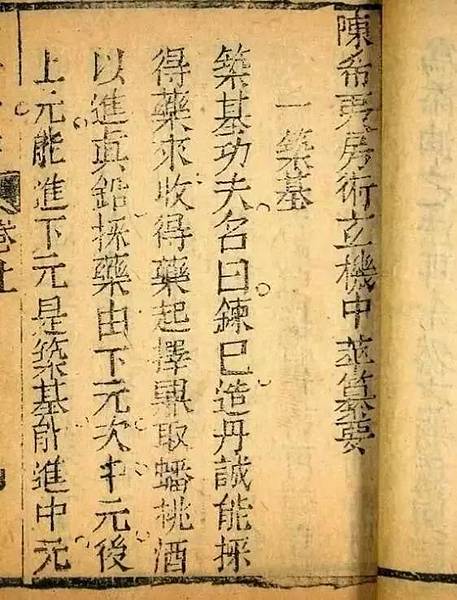 陳希夷房術玄機中萃纂要
一築基
築基功夫名曰鍊已造丹誠能採
得藥來收得藥起擇鼎取蟠桃酒
以進眞鉛採藥由下元次中元後
上元能進下元是築基能進中元